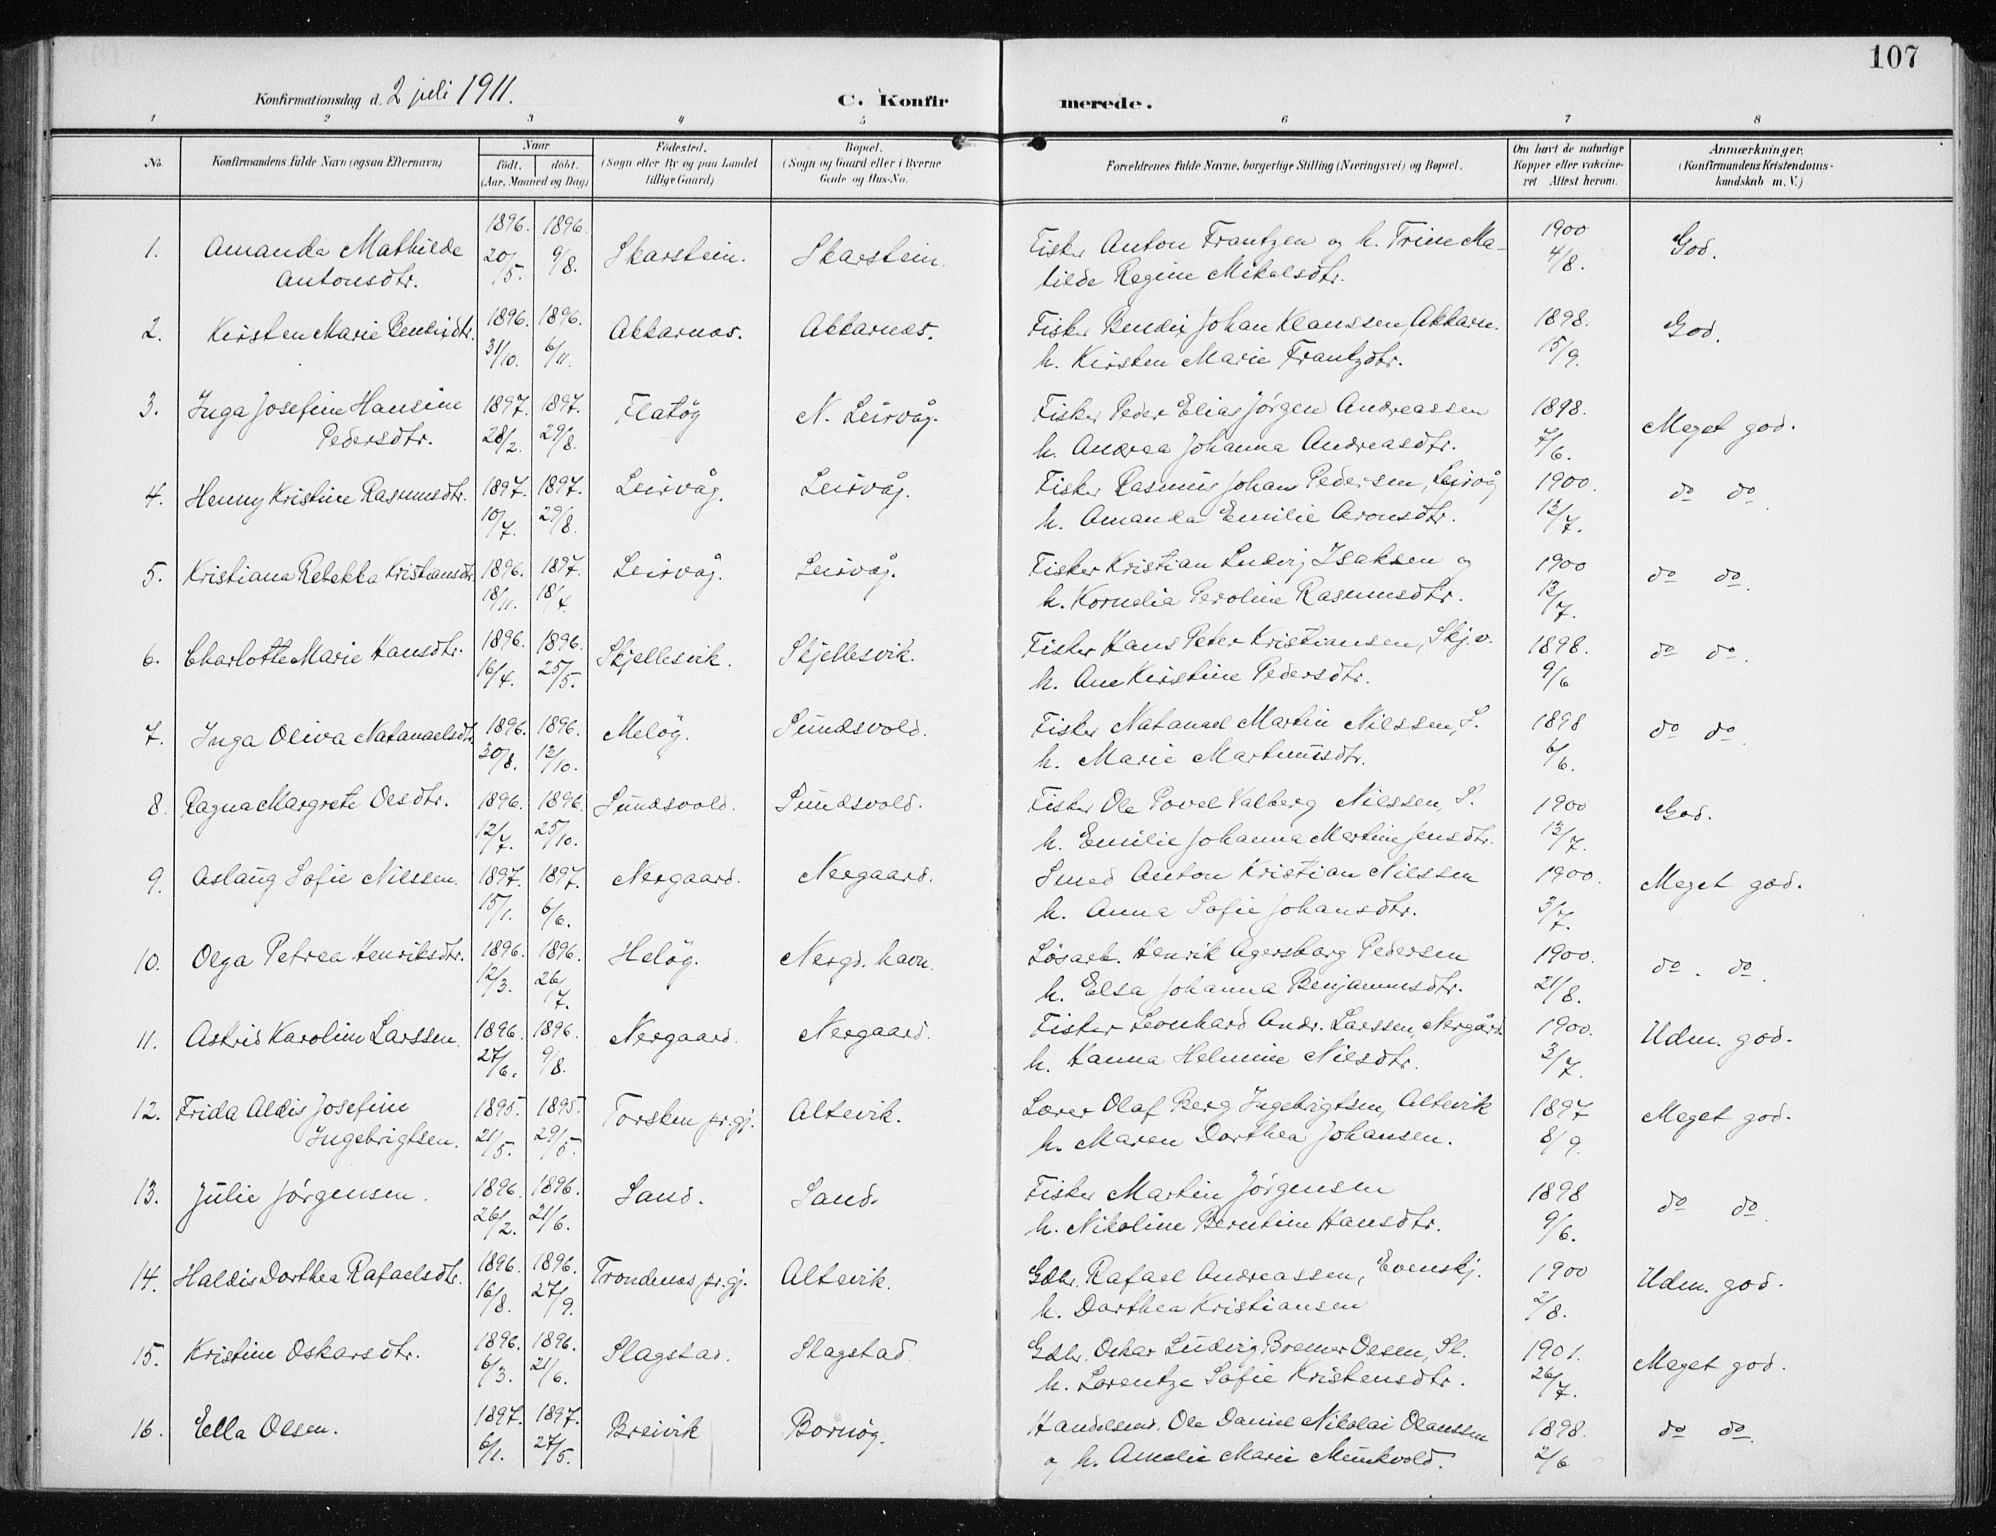 107
Konfirmationsdag d. 2 juli 1911. C. Konfirmerede.
1 2 3 4 5 6 7 8
No. Konfirmandens fulde Navn (ogsaa Efternavn) Naar født. døbt. (Aar, Maaned og Dag) Fødested. (Sogn eller By og paa Landet tillige Gaard) Bopæl. (Sogn og Gaard eller i Byerne Gade og Hus-No. Forældrenes fulde Navne, borgerlige Stilling (Næringsvei) og Bopæl. Om havt de naturlige Kopper eller vakcineret Attest herom. Anmærkninger. (Konfirmandens Kristendomskundskab m. V.)
1. Amanda Mathilde 1896. 1896. Skarstein. Skarstein. Fisker Anton Frantzen og h. Trine Ma- 1900 God.
Antonsdtr. 20/5. 9/8. tilde Regine Mikalsdtr. 4/8.
2. Kirsten Marie Bendixdtr. 1896. 1896. Akkarnæs. Akkarnæs. Fisker Bendix Johan Klaussen, Akkarn. 1898. God.
31/10. 6/11. h. Kirsten Marie Frantzdtr. 15/9.
3. Inga Josefine Hansine 1897. 1897. Flatøg N. Leirvåg. Fisker Peder Elias Jørgen Andreassen 1898. Meget god.
Pedersdtr. 28/2. 29/8. h. Andrea Johanna Andreasdtr. 7/6.
4. Henny Kristine Rasmusdtr. 1897. 1897. Leirvåg. Leirvåg. Fisker Rasmus Johan Pedersen, Leirvåg 1900. do do.
10/7. 29/8. h. Amanda Emilie Aronsdtr. 12/7.
5. Kristiana Rebekka Kristiansdtr. 1896. 1897. Leirvåg. Leirvåg. Fisker Kristian Ludvig Isaksen og 1900 do do.
18/11. 18/4. h. Kornelia Peroline Rasmusdtr. 12/7.
6. Charlotte Marie Hansdtr. 1896. 1896. Skjellesvik. Skjellesvik. Fisker Hans Peter Kristiansen, Skj.v. 1898. do do.
16/4. 25/5. h. Ane Kirstine Pedersdtr. 9/6
7. Inga Oliva Natanaelsdtr. 1896. 1896. Meløg. Sundsvold. Fisker Natanael Martin Nilssen, S. 1898 do do.
30/8. 12/10. h. Marie Martinusdtr. 6/6.
8. Ragna Margrete Olsdtr. 1896. 1896 Sundsvold. Sundsvold. Fisker Ole Povel Valberg Nilssen, S. 1900 God.
12/7. 25/10. h. Emilie Johanna Martine Jensdtr. 13/7.
9. Aslaug Sofie Nilssen. 1897. 1897. Nergaard. Nergaard. Smed Anton Kristian Nilssen 1900. Meget god.
15/1. 6/6. h. Anna Sofie Johansdtr. 3/7.
10. Olga Petrea Henriksdtr. 1896. 1896. Heløg. Nergd. havn. Løsarb. Henrik Agersborg Pedersen 1900. do. do.
12/3. 26/7. h. Elsa Johanna Benjaminsdtr. 21/8.
11. Astrid Karoline Larssen. 1896. 1896. Nergaard. Nergaard. Fisker Leonhard Andr. Larssen, Nergård. 1900. Udm. god.
27/6. 9/8. h. Hanna Helmine Nilsdtr. 3/7.
12. Frida Aldis Josefine 1895. 1895. Torsken pr.gj. Altevik. Lærer Olaf Berg Ingebrigtsen, Altevik 1897 Meget god.
Ingebrigtsen. 21/5. 29/5. h. Maren Dorthea Johansen. 8/9.
13. Julie Jørgensen. 1896. 1896. Sand. Sand. Fisker Martin Jørgensen 1898 do do.
26/2. 21/6. h. Nikoline Berntine Hansdtr. 9/6.
14. Haldis Dorthea Rafaelsdtr. 1896. 1896. Trondenæs pr.gj. Altevik. Gdbr. Rafael Andreassen, Evenskj. 1900 Udm. god.
16/8. 27/9. h. Dorthea Kristiansen 2/8.
15. Kristine Oskarsdtr. 1896. 1896. Slagstad. Slagstad. Gdbr. Oskar Ludvig Bremer Olsen, Sl. 1901. Meget god.
6/3. 21/6. h. Lorentze Sofie Kristensdtr. 26/7.
16. Ella Olsen. 1897. 1897. Breivik Bornøg. Handelsmd. Ole Daniel Nikolai Olaussen 1898. do do.
6/1. 27/5. og h. Amalie Marie Munkvold. 2/6